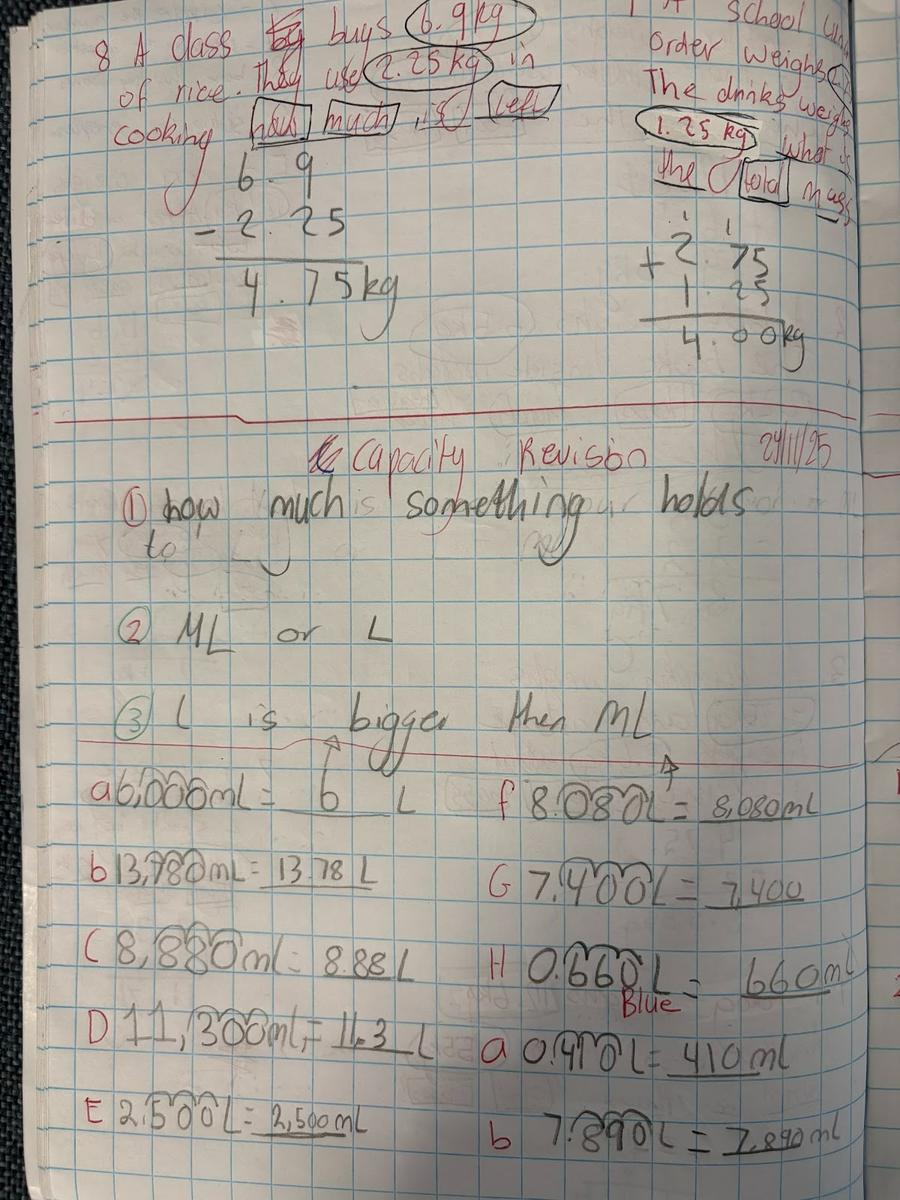 8 A class buys 6.9kg
of rice. They use 2.25 kg in
cooking how much is left
6.9
- 2.25
4.75kg
A school
order weighs
The drinks weigh
1.25 kg what is
the total mass
1 1
+ 2.75
1.25
4.00kg
Capacity Revision 24/11/25
① how much is something holds
to
② ML or L
③ L is bigger then ML
a 6,000mL = 6 L
b 13,780mL = 13.78 L
C 8,880ml = 8.88 L
D 11,300mL = 11.3 L
E 2.500L = 2,500mL
f 8.080L = 8,080mL
G 7.400L = 7,400
H 0.660L = 660ml
Blue
a 0.410L = 410ml
b 7.890L = 7.890ml